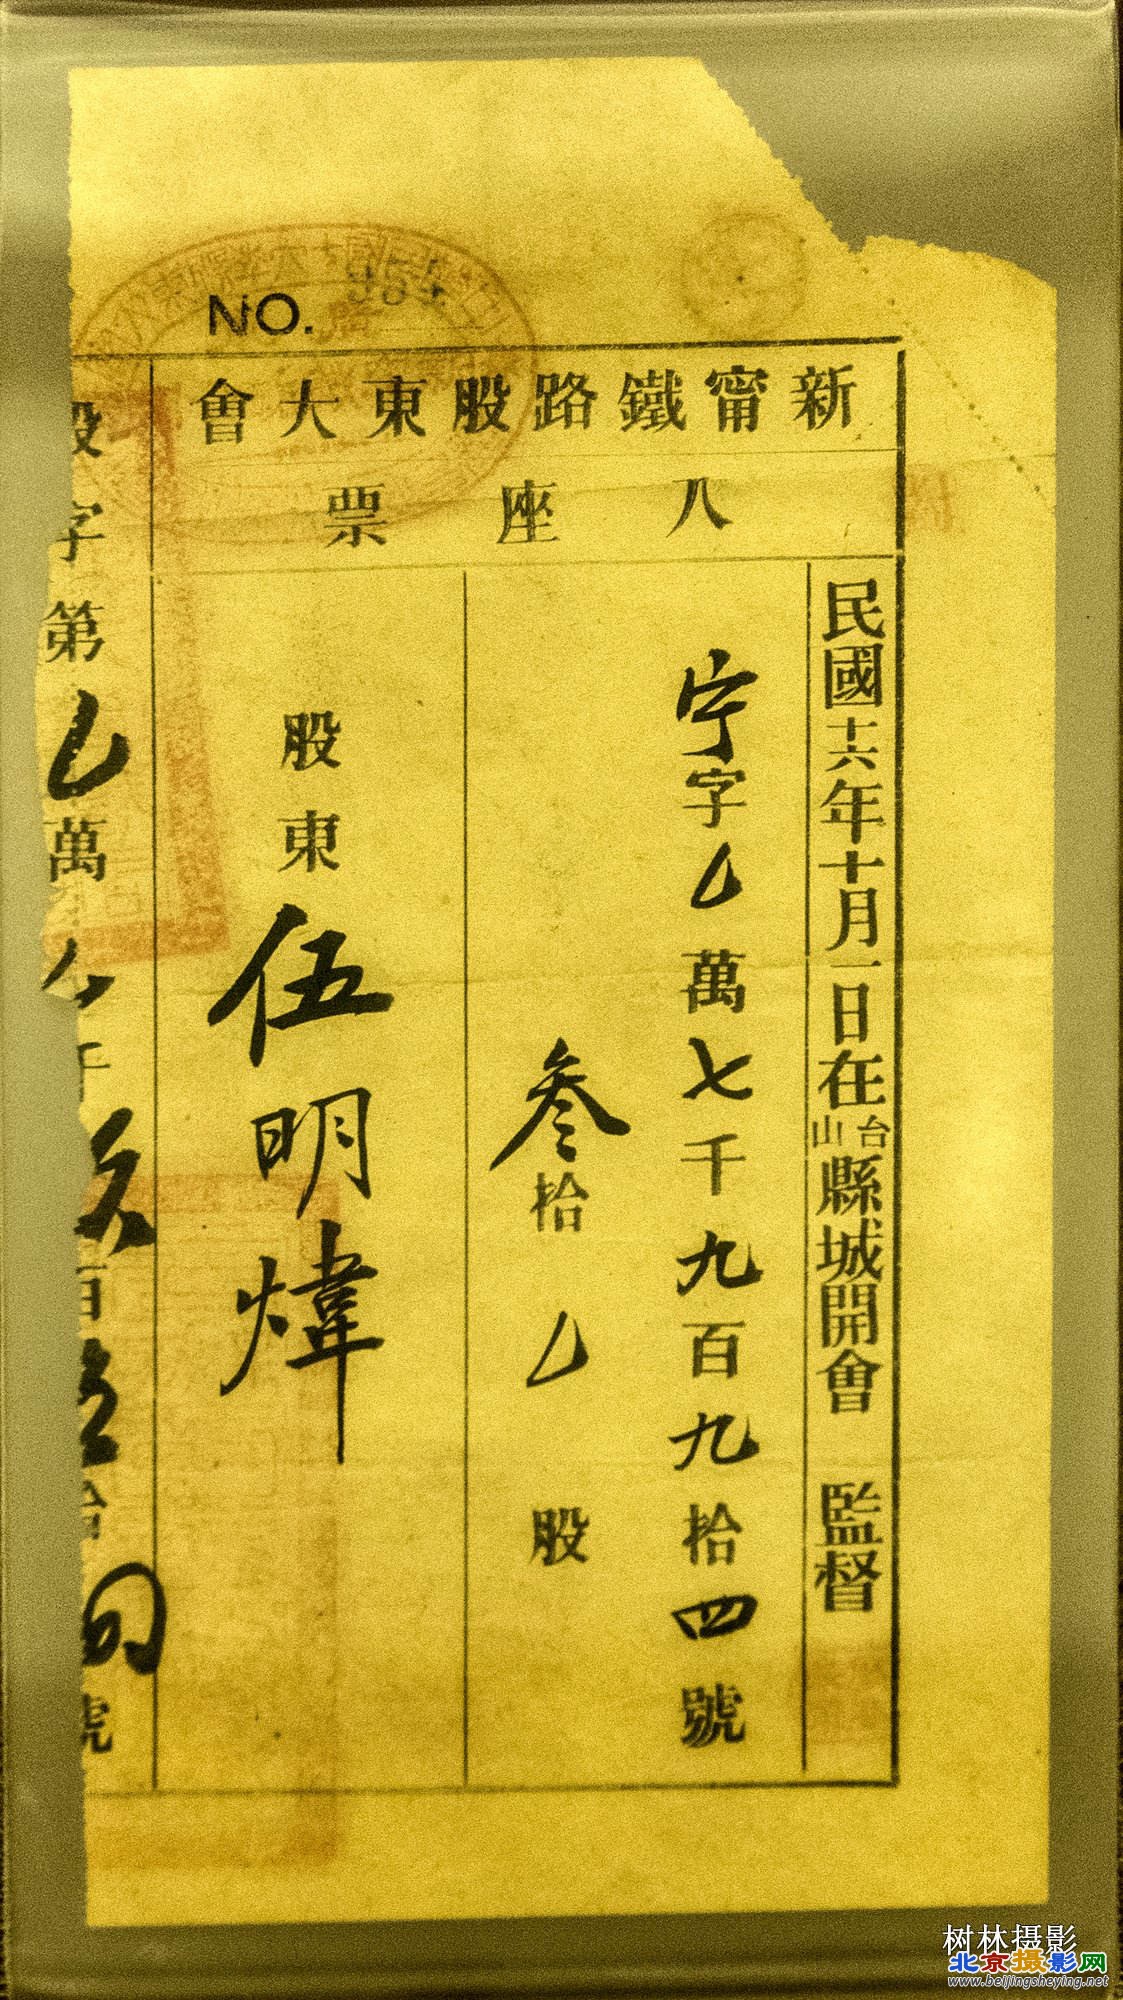 NO. 954
新甯鐵路股東大會
入座票
民國十六年十月一日在台山縣城開會 監督
宁字乙萬七千九百九拾四號
叁拾乙股
股東伍明煒
股字第乙萬
百
拾
號
树林摄影
北京摄影网
www.beijingsheying.net